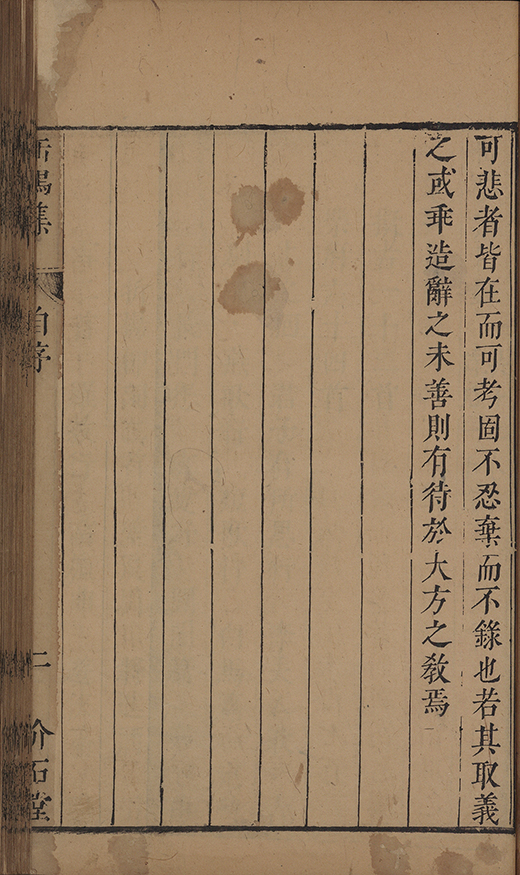 可悲者皆在而可考固不忍棄而不錄也若其取義
之或乖造辭之未善則有待於大方之敎焉
集
自序
二
介石堂